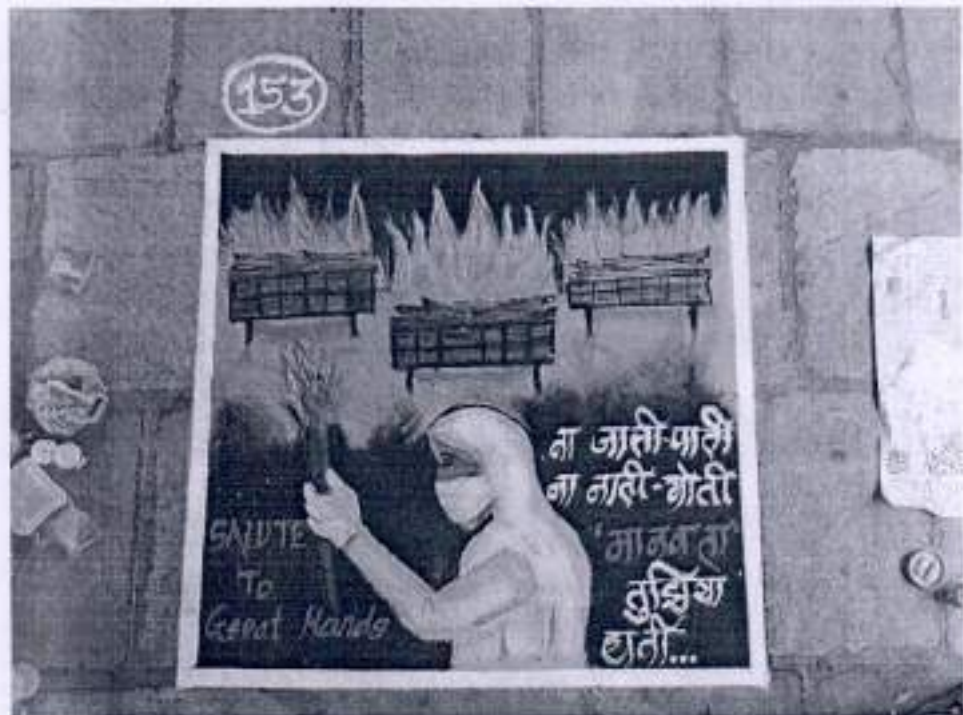 153
ना जाती-पाती
ना नाती-गोती
'मानवता'
तुझिया
हाती...
SALUTE
To
Great Hands